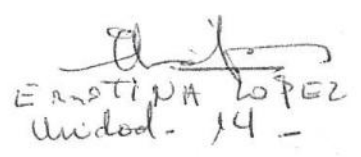 ERNSTINA LOPEZ
Unidad - 14 -